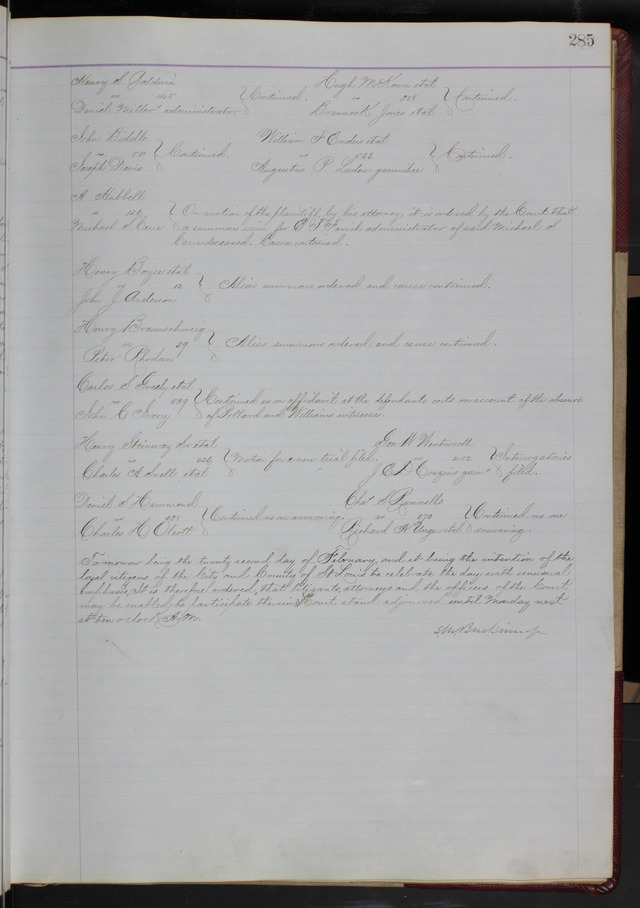 285
Henry S
vs
Daniel Miller administrator
Continued.
Hugh McKown etal
vs
Jones etal
Continued.
John Biddle
vs
Joseph Davis
Continued.
William F Enders etal
vs
Augustus P Ladew garnishee
Continued.
A Hubbell
vs 126
Michael S Cerre
On motion of the plaintiff by his attorney, it is ordered by the Court that
a summons issue for administrator of said Michael S
Cerre deceased. Cause continued.
Henry Boyce etal
vs 12
John J Anderson
Alias summons ordered and cause continued.
Henry Braunschweig
vs 29
Peter Phelan
Alias summons ordered and cause continued.
Carlos S Greely etal
vs 599
John C Ivory
Continued as on affidavit at the defendants costs on account of the absence
of Pollard and Williams witnesses.
Henry Steinway Sr etal
vs 626
Charles A Snell etal
Motion for a new trial filed.
Geo W Wentworth
vs 202
J garn
Interrogatories
filed.
Daniel S Hammond
vs
Charles H Olcott
Continued as no answering.
Chas S Runnells
vs 670
Richard H Unger etal
Continued as no
answering.
Tomorrow being the twenty second day of February, and it being the intention of the
loyal citizens of the City and County of St Louis to celebrate the day with unusual
emphasis, It is therefore ordered, that litigants, attorneys and the officers of the Court
may be enabled to participate therein, Court stand adjourned until Monday next
at ten o'clock A.M.